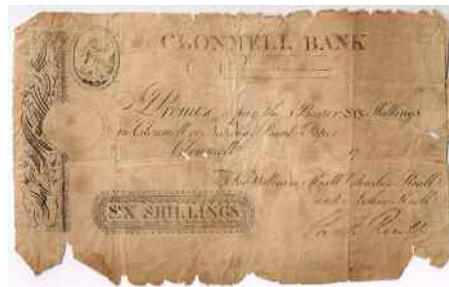 CLONMELL BANK
I Promise to pay the Bearer SIX Shillings
in Clonmell or National Bank Paper
Clonmell 17
For William Riall Charles Riall
and Arthur Riall
SIX SHILLINGS